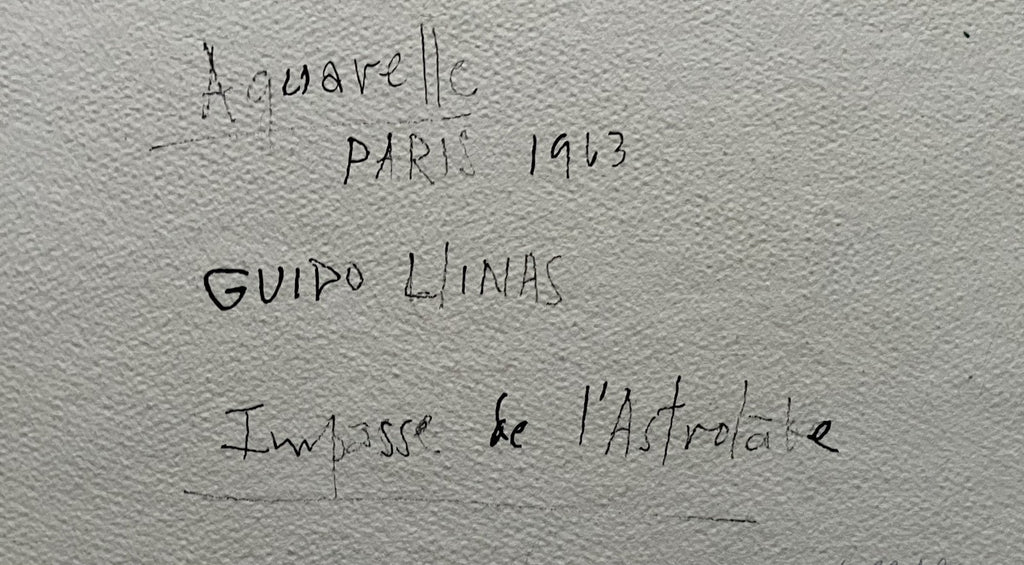 Aquarelle
PARIS 1963
GUIDO LlINAS
Impasse de l'Astrolabe